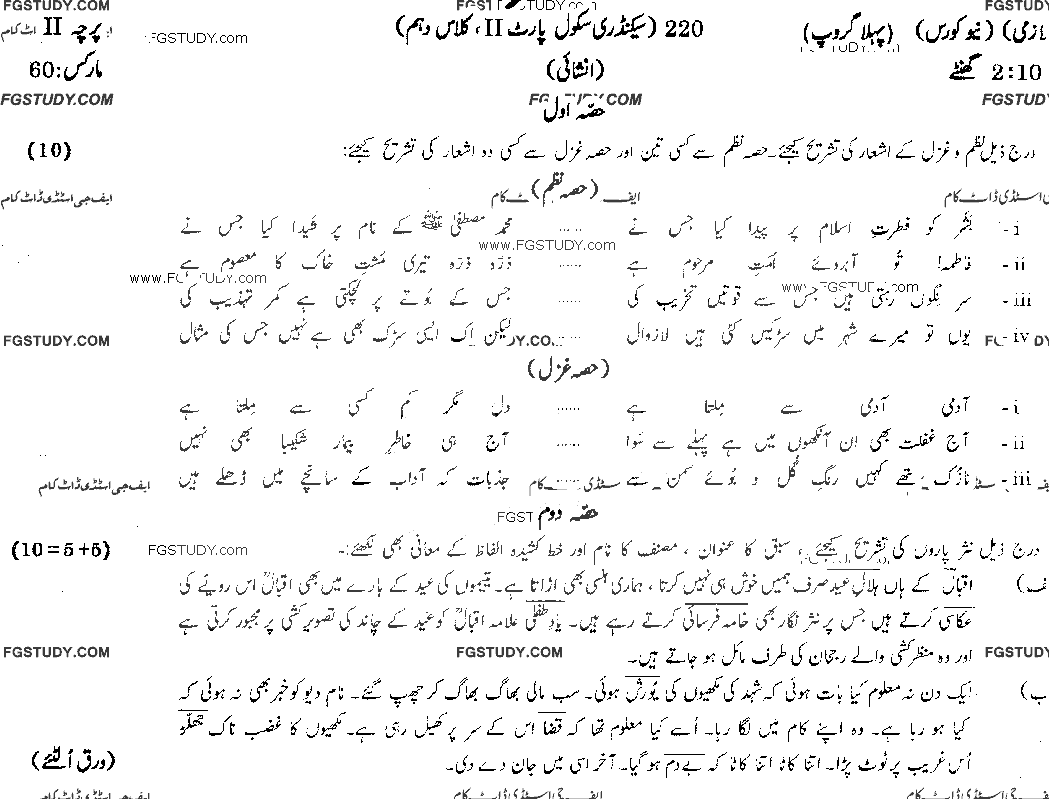 FGSTUDY.COM FGSTUDY.COM FGSTUDY.COM
(نیو کورس) (پہلا گروپ) 220 (سیکنڈری سکول پارٹ II، کلاس دہم) پرچہ II
FGSTUDY.COM
2:10 گھنٹے (انشائی) مارکس:60
FGSTUDY.COM COM FGSTUDY
حصّہ اول
درج ذیل نظم و غزل کے اشعار کی تشریح کیجئے۔ حصہ نظم سے کسی تین اور حصہ غزل سے کسی دو اشعار کی تشریح کیجئے: (10)
اسٹڈی ڈاٹ کام ایف کام ایف جی اسٹڈی ڈاٹ کام
(حصہ نظم)
i- بشر کو فطرتِ اسلام پر پیدا کیا جس نے ...... محمد مصطفیٰ ﷺ کے نام پر شیدا کیا جس نے
www.FGSTUDY.com
ii- فاطمہ! تُو آبروئے امّتِ مرحوم ہے ...... ذرّہ ذرّہ تیری مُشتِ خاک کا معصوم ہے
www.FGSTUDY.com www.FGSTUDY.com
iii- سر نِگوں رہتی ہیں جس سے قوتیں تخریب کی ...... جس کے بُوتے پر لچکتی ہے کمر تہذیب کی
iv- یوں تو میرے شہر میں سڑکیں کئی ہیں لازوال ...... لیکن اِک ایسی سڑک بھی ہے نہیں جس کی مثال
FGSTUDY.COM
(حصہ غزل)
i- آدمی آدمی سے مِلتا ہے ...... دل مگر کم کسی سے مِلتا ہے
ii- آج غفلت بھی ان آنکھوں میں ہے پہلے سے سَوا ...... آج ہی خاطرِ بیمار شکیبا بھی نہیں
iii- نازُک تھے کہیں رنگِ گُل و بُوئے سمن سے ...... جذبات کہ آداب کے سانچے میں ڈھلے ہیں
ایف جی اسٹڈی ڈاٹ کام
حصّہ دوم
درج ذیل نثر پاروں کی تشریح کیجئے، سبق کا عنوان، مصنف کا نام اور خط کشیدہ الفاظ کے معانی بھی لکھئے:- (10=5+5)
FGSTUDY.com
اقبالؒ کے ہاں ہلالِ عید صرف ہمیں خوش ہی نہیں کرتا، ہماری ہنسی بھی اڑاتا ہے۔ یتیموں کی عید کے بارے میں بھی اقبالؒ اس رویے کی
عکاسی کرتے ہیں جس پر نثر نگار بھی خامہ فرسائی کرتے رہے ہیں۔ یادِ طفلی علامہ اقبالؒ کو عید کے چاند کی تصویر کشی پر مجبور کرتی ہے
اور وہ منظر کشی والے رجحان کی طرف مائل ہو جاتے ہیں۔
FGSTUDY.COM FGSTUDY.COM FGSTUDY
ب) ایک دن نہ معلوم کیا بات ہوئی کہ شہد کی مکھیوں کی یُورش ہوئی۔ سب مالی بھاگ بھاگ کر چھپ گئے۔ نام دیو کو خبر بھی نہ ہوئی کہ
کیا ہو رہا ہے۔ وہ اپنے کام میں لگا رہا۔ اُسے کیا معلوم تھا کہ قضا اس کے سر پر کھیل رہی ہے۔ مکھیوں کا غضب ناک جھلّڑ
اُس غریب پر ٹوٹ پڑا۔ اتنا کاٹا اتنا کاٹا کہ بے دم ہو گیا۔ آخر اسی میں جان دے دی۔ (ورق اُلٹئے)